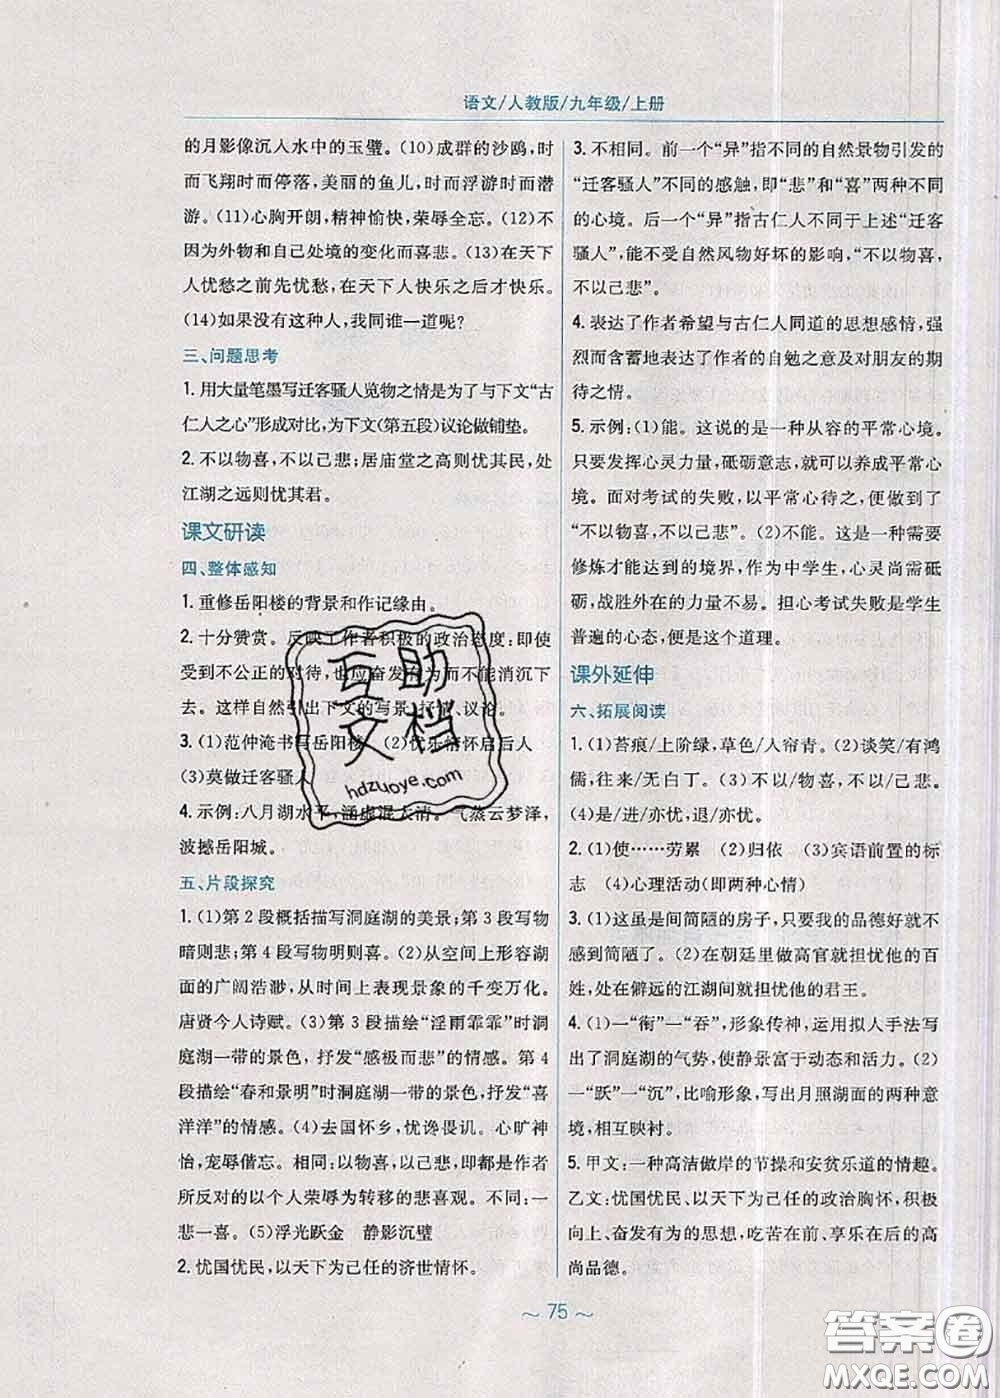 语文/人教版/九年级/上册
的月影像沉入水中的玉璧。(10)成群的沙鸥,时
而飞翔时而停落,美丽的鱼儿,时而浮游时而潜
游。(11)心胸开朗,精神愉快,荣辱全忘。(12)不
因为外物和自己处境的变化而喜悲。(13)在天下
人忧愁之前先忧愁,在天下人快乐之后才快乐。
(14)如果没有这种人,我同谁一道呢?
三、问题思考
1. 用大量笔墨写迁客骚人览物之情是为了与下文“古
仁人之心”形成对比,为下文(第五段)议论做铺垫。
2. 不以物喜,不以己悲;居庙堂之高则忧其民,处
江湖之远则忧其君。
课文研读
四、整体感知
1. 重修岳阳楼的背景和作记缘由。
2. 十分赞赏。反映了作者积极的政治态度:即使
受到不公正的对待,也应奋发有为而不能消沉下
去。这样自然引出下文的写景、抒情、议论。
3. (1)范仲淹书写岳阳楼 (2)忧乐情怀启后人
(3)莫做迁客骚人
4. 示例:八月湖水平,涵虚混太清。气蒸云梦泽,
波撼岳阳城。
五、片段探究
1. (1)第2段概括描写洞庭湖的美景;第3段写物
暗则悲;第4段写物明则喜。(2)从空间上形容湖
面的广阔浩渺,从时间上表现景象的千变万化。
唐贤今人诗赋。(3)第3段描绘“淫雨霏霏”时洞
庭湖一带的景色,抒发“感极而悲”的情感。第4
段描绘“春和景明”时洞庭湖一带的景色,抒发“喜
洋洋”的情感。(4)去国怀乡,忧谗畏讥。心旷神
怡,宠辱偕忘。相同:以物喜,以己悲,即都是作者
所反对的以个人荣辱为转移的悲喜观。不同:一
悲一喜。(5)浮光跃金 静影沉璧
2. 忧国忧民,以天下为己任的济世情怀。
3. 不相同。前一个“异”指不同的自然景物引发的
“迁客骚人”不同的感触,即“悲”和“喜”两种不同
的心境。后一个“异”指古仁人不同于上述“迁客
骚人”,能不受自然风物好坏的影响,“不以物喜,
不以己悲”。
4. 表达了作者希望与古仁人同道的思想感情,强
烈而含蓄地表达了作者的自勉之意及对朋友的期
待之情。
5. 示例:(1)能。这说的是一种从容的平常心境。
只要发挥心灵力量,砥砺意志,就可以养成平常心
境。面对考试的失败,以平常心待之,便做到了
“不以物喜,不以己悲”。(2)不能。这是一种需要
修炼才能达到的境界,作为中学生,心灵尚需砥
砺,战胜外在的力量不易。担心考试失败是学生
普遍的心态,便是这个道理。
课外延伸
六、拓展阅读
1. (1)苔痕/上阶绿,草色/入帘青。(2)谈笑/有鸿
儒,往来/无白丁。(3)不以/物喜,不以/己悲。
(4)是/进/亦忧,退/亦忧。
2. (1)使……劳累 (2)归依 (3)宾语前置的标
志 (4)心理活动(即两种心情)
3. (1)这虽是间简陋的房子,只要我的品德好就不
感到简陋了。(2)在朝廷里做高官就担忧他的百
姓,处在僻远的江湖间就担忧他的君王。
4. (1)一“衔”一“吞”,形象传神,运用拟人手法写
出了洞庭湖的气势,使静景富于动态和活力。(2)
一“跃”一“沉”,比喻形象,写出月照湖面的两种意
境,相互映衬。
5. 甲文:一种高洁傲岸的节操和安贫乐道的情趣。
乙文:忧国忧民、以天下为己任的政治胸怀,积极
向上、奋发有为的博大胸襟,吃苦在前、享乐在后的高
尚品德。
～ 75 ～
互助
文档
hdzuoye.com
答案圈
MXQE.COM